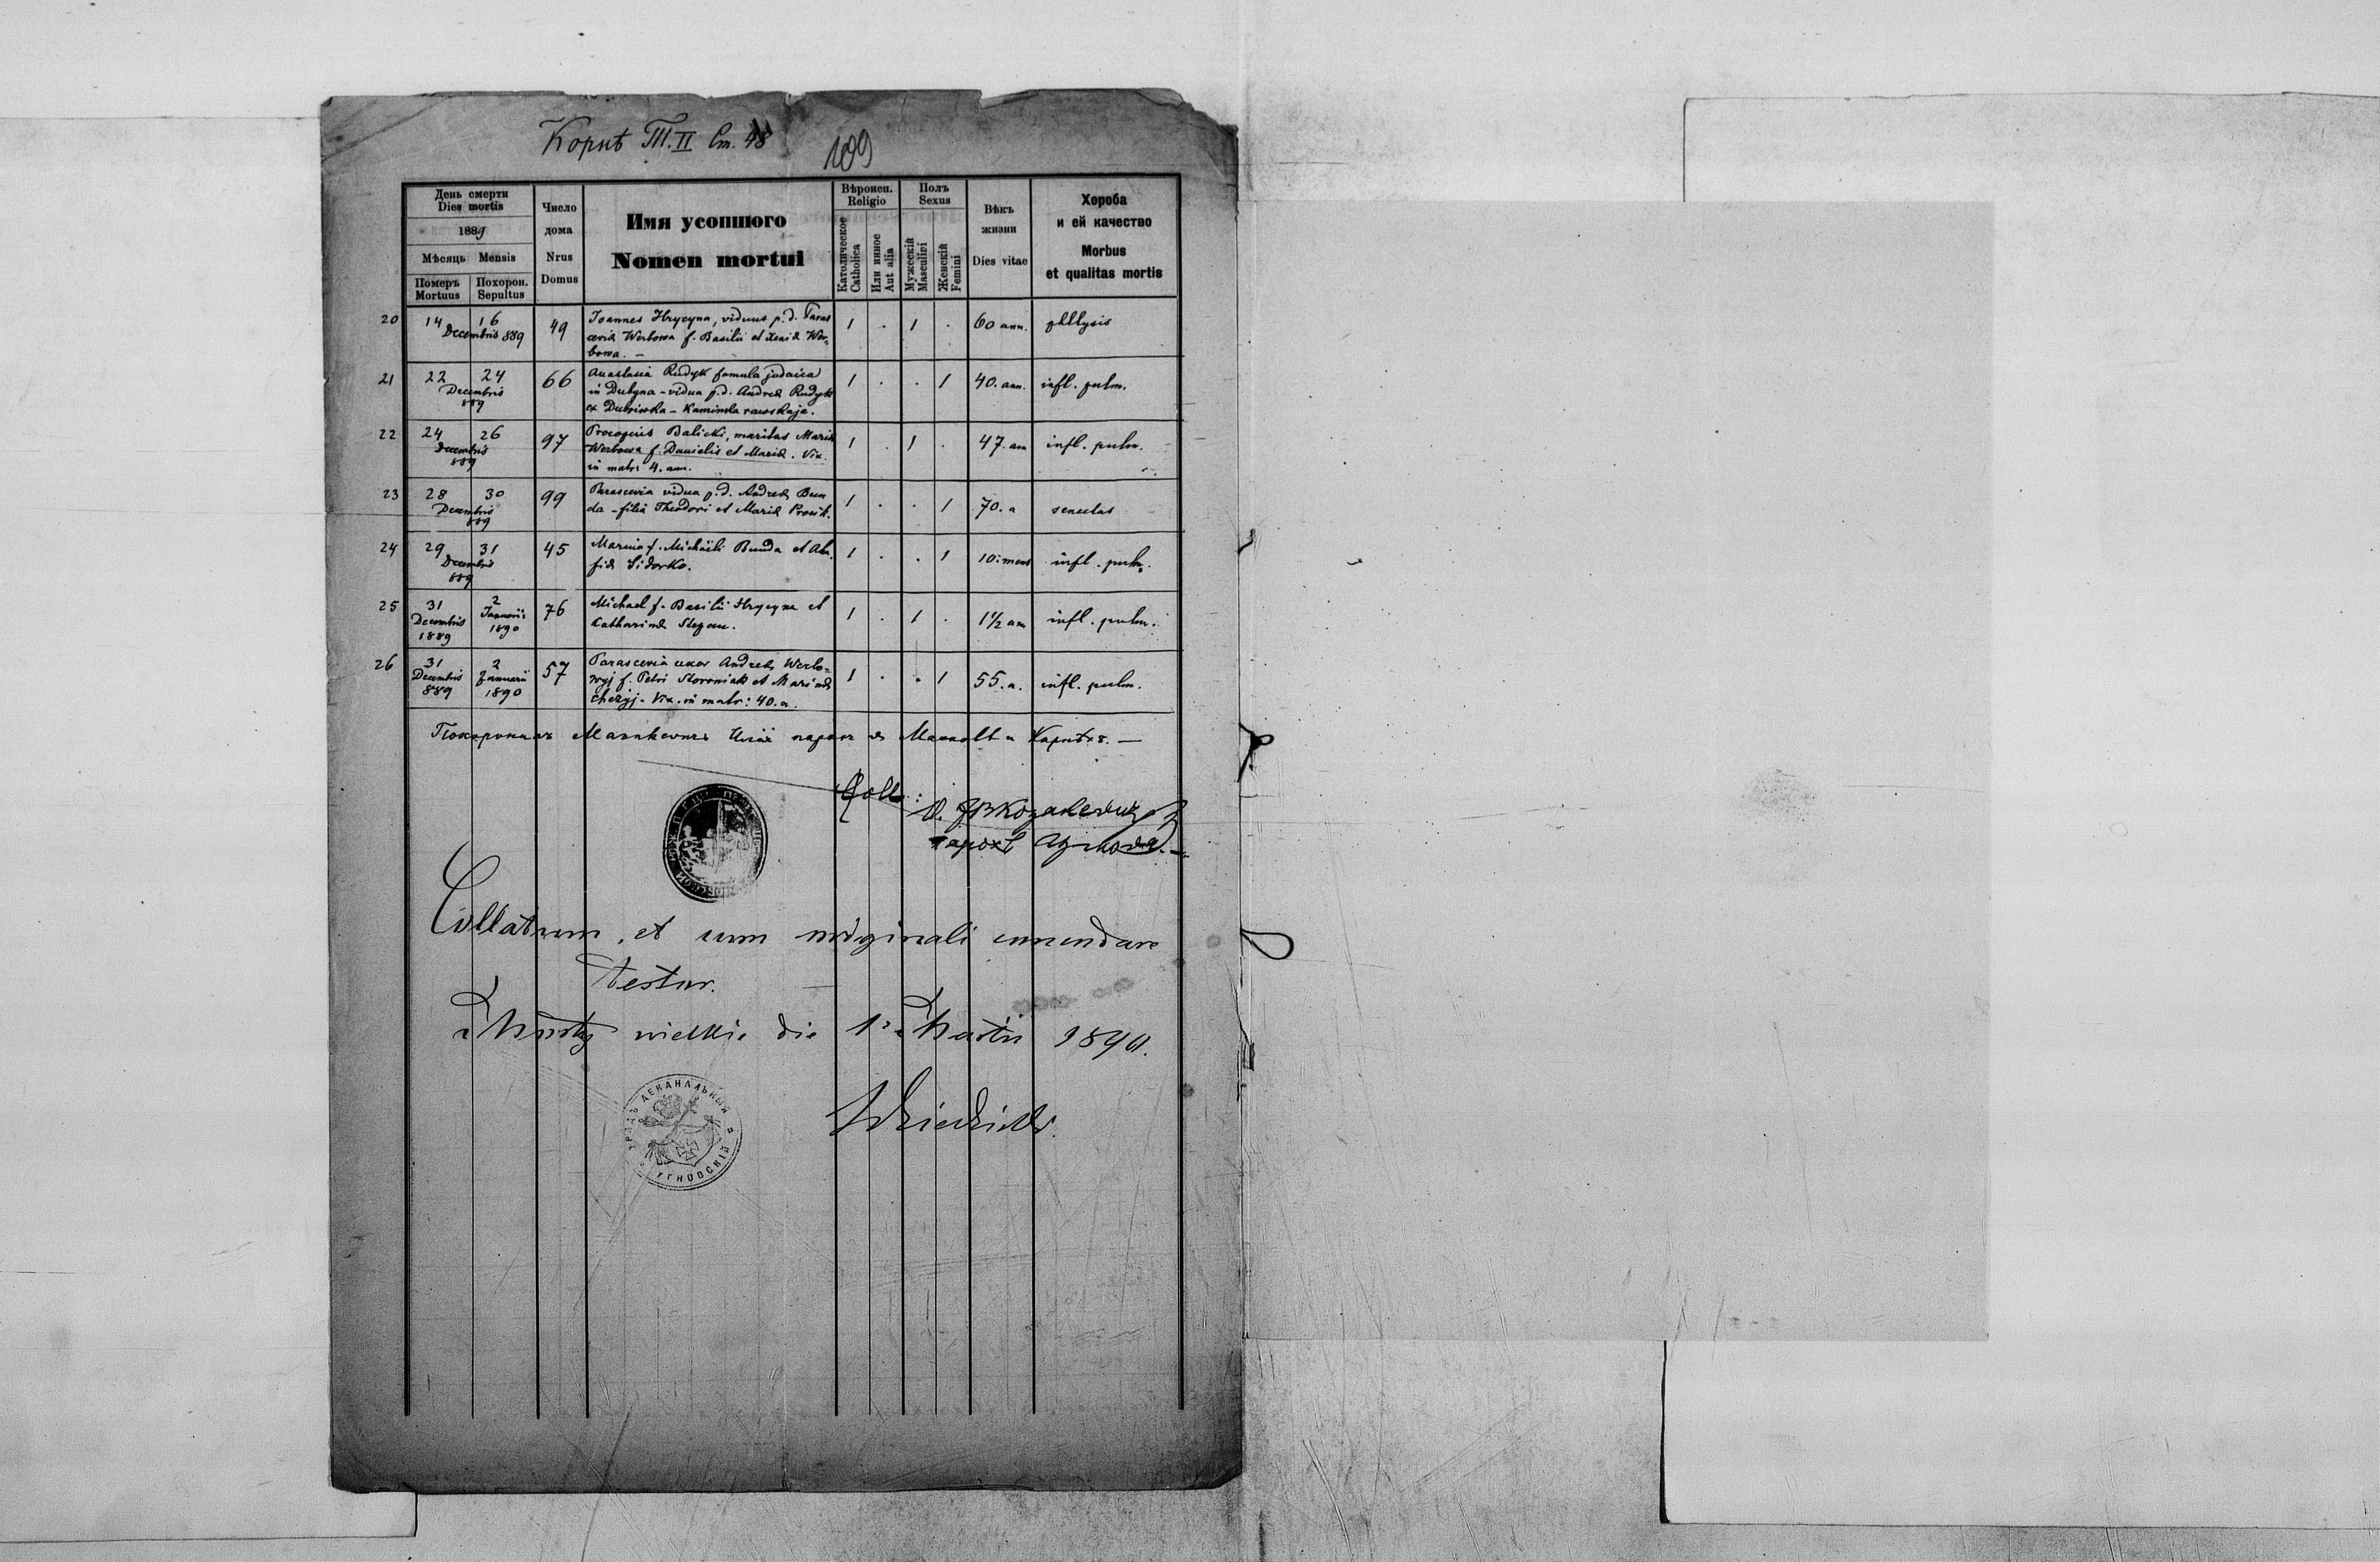 Корнѣ Т.II Ст. 48
199
День смерти
Dies mortis
1889
Мѣсяць Mensis
Померъ Похорон.
Mortuus Sepultus
Число
дома
Nrus
Domus
Имя усопшого
Nomen mortui
Вѣроисп.
Religio
Католическое
Catholica
Или инное
Aut alia
Полъ
Sexus
Мужескій
Masculini
Женскій
Femini
Вѣкъ
жизни
Dies vitae
Хороба
и ей качество
Morbus
et qualitas mortis
20 14 16 Decembris 889 49 Joannes Hrycyna, viduus p. d. Paras
ceviæ Werbowa f. Basilii et Xeniæ Wer=
bowa. – 1 . 1 . 60 ann. phthysis
21 22 24 Decembris 889 66 Anastasia Rudyk famula judaica
in Dubyna – vidua p. d. Andreæ Rudyk
ex Dubriwka – Kaminka rawskaja. 1 . . 1 40. ann. infl. pulm.
22 24 26 Decembris 889 97 Procopius Balicki, maritus Mariæ
Werbowa f. Danielis et Mariæ. Vix.
in matr: 4. ann. 1 . 1 . 47. an infl. pulm.
23 28 30 Decembris 889 99 Parascevia vidua p. d. Andreæ Bun
da – filia Theodori et Mariæ 1 . . 1 70. a senectus
24 29 31 Decembris 889 45 Marina f. Michaëli Bunda et
fiæ Sidorko. 1 . . 1 10: mens infl. pulm.
25 31 Decembris 1889 2 Januarii 1890 76 Michael f. Basilii Hrycyna et
Catharinæ Stepan. 1 . 1 . 1 1/2 ann infl. pulm.
26 31 Decembris 889 2 Januarii 1890 57 Parascevia uxor Andreæ Werbo=
wyj f. Petri Storoniak et Marinæ
Vix. in matr: 40. a. 1 . . 1 55. a. infl. pulm.
Похоронилъ парох
Coll:
парохъ
Collatum, et cum originali
testor.
wielkie die 1890.
УРЯДЪ ДЕКАНАЛЬНЫЙ УГНОВСКІЙ